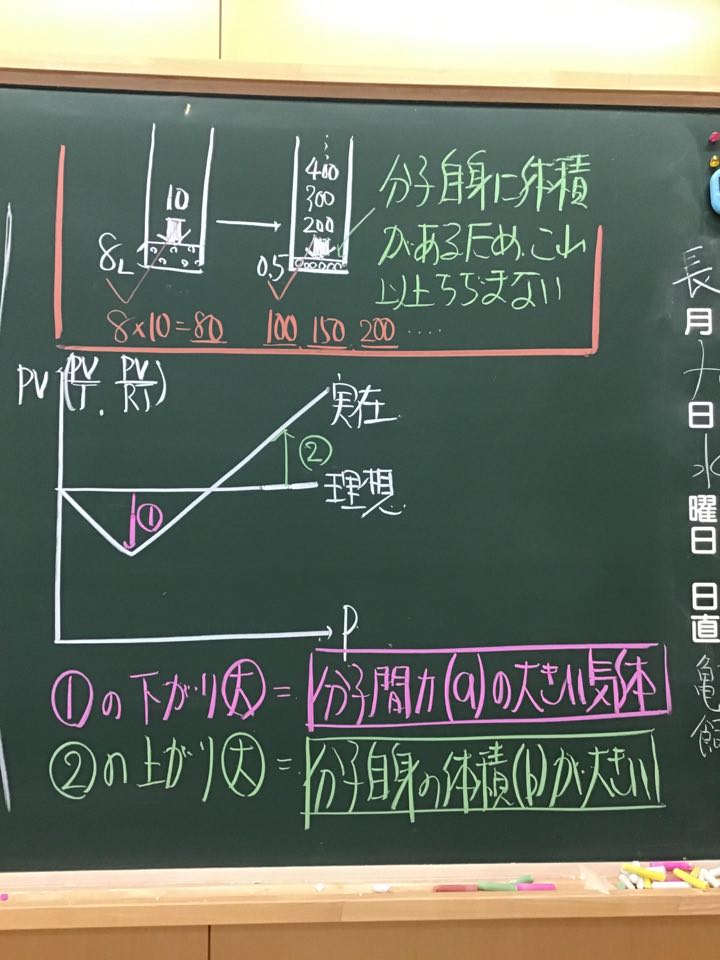 10
8L
8×10=80
400
300
200
0.5
100 150 200 ····
分子自身に体積
があるため、これ
以上ちぢまない
PV (PV/T, PV/RT)
実在
②
理想
①
P
①の下がり大=分子間力(a)の大きい気体
②の上がり大=分子自身の体積(b)が大きい
長
月
日
水
曜
日
日
直
亀
飼